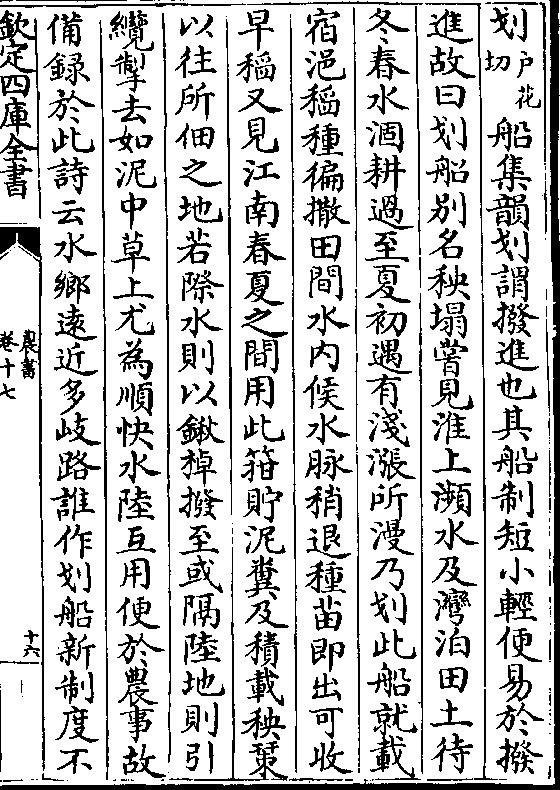 划户花切船集韻划謂撥進也其船制短小輕便易於撥
進故曰划船别名秧塌嘗見淮上瀕水及灣泊田土待
冬春水涸耕過至夏初遇有淺漲所漫乃划此船就載
宿浥稻種徧撒田間水内候水脉稍退種苗即出可收
早稻又見江南春夏之間用此箝貯泥糞及積載秧𦼮
以往所佃之地若際水則以鍬棹撥至或隔陸地則引
纜掣去如泥中草上尤為順快水陸互用便於農事故
備録於此詩云水鄉遠近多岐路誰作划船新制度不
欽定四庫全書
農書
卷十七
十六